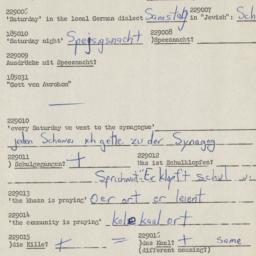 229006 229007
'Saturday' in the local German dialect Samstag in "Jewish": Sch
185010 229008
'Saturday night' )Spejsgsnacht?
229009
Ausdrücke mit Spejsgsnacht?
185031
"Gott von Awrohom"
—
229010
'every Saturday we went to the synagogue'
jeden Schawes ich gehe zu der Synagog
229011 229012
) Schulgegangen? + Was ist Schulklopfen?
Sprichwort: Er klopft Schul
229013
'the khazn is praying' Oer ort er leient
229014
'the community is praying' Kolekaul ort
229015 229016
)die Kille? + = )das Kaal? + same
(different meaning?)